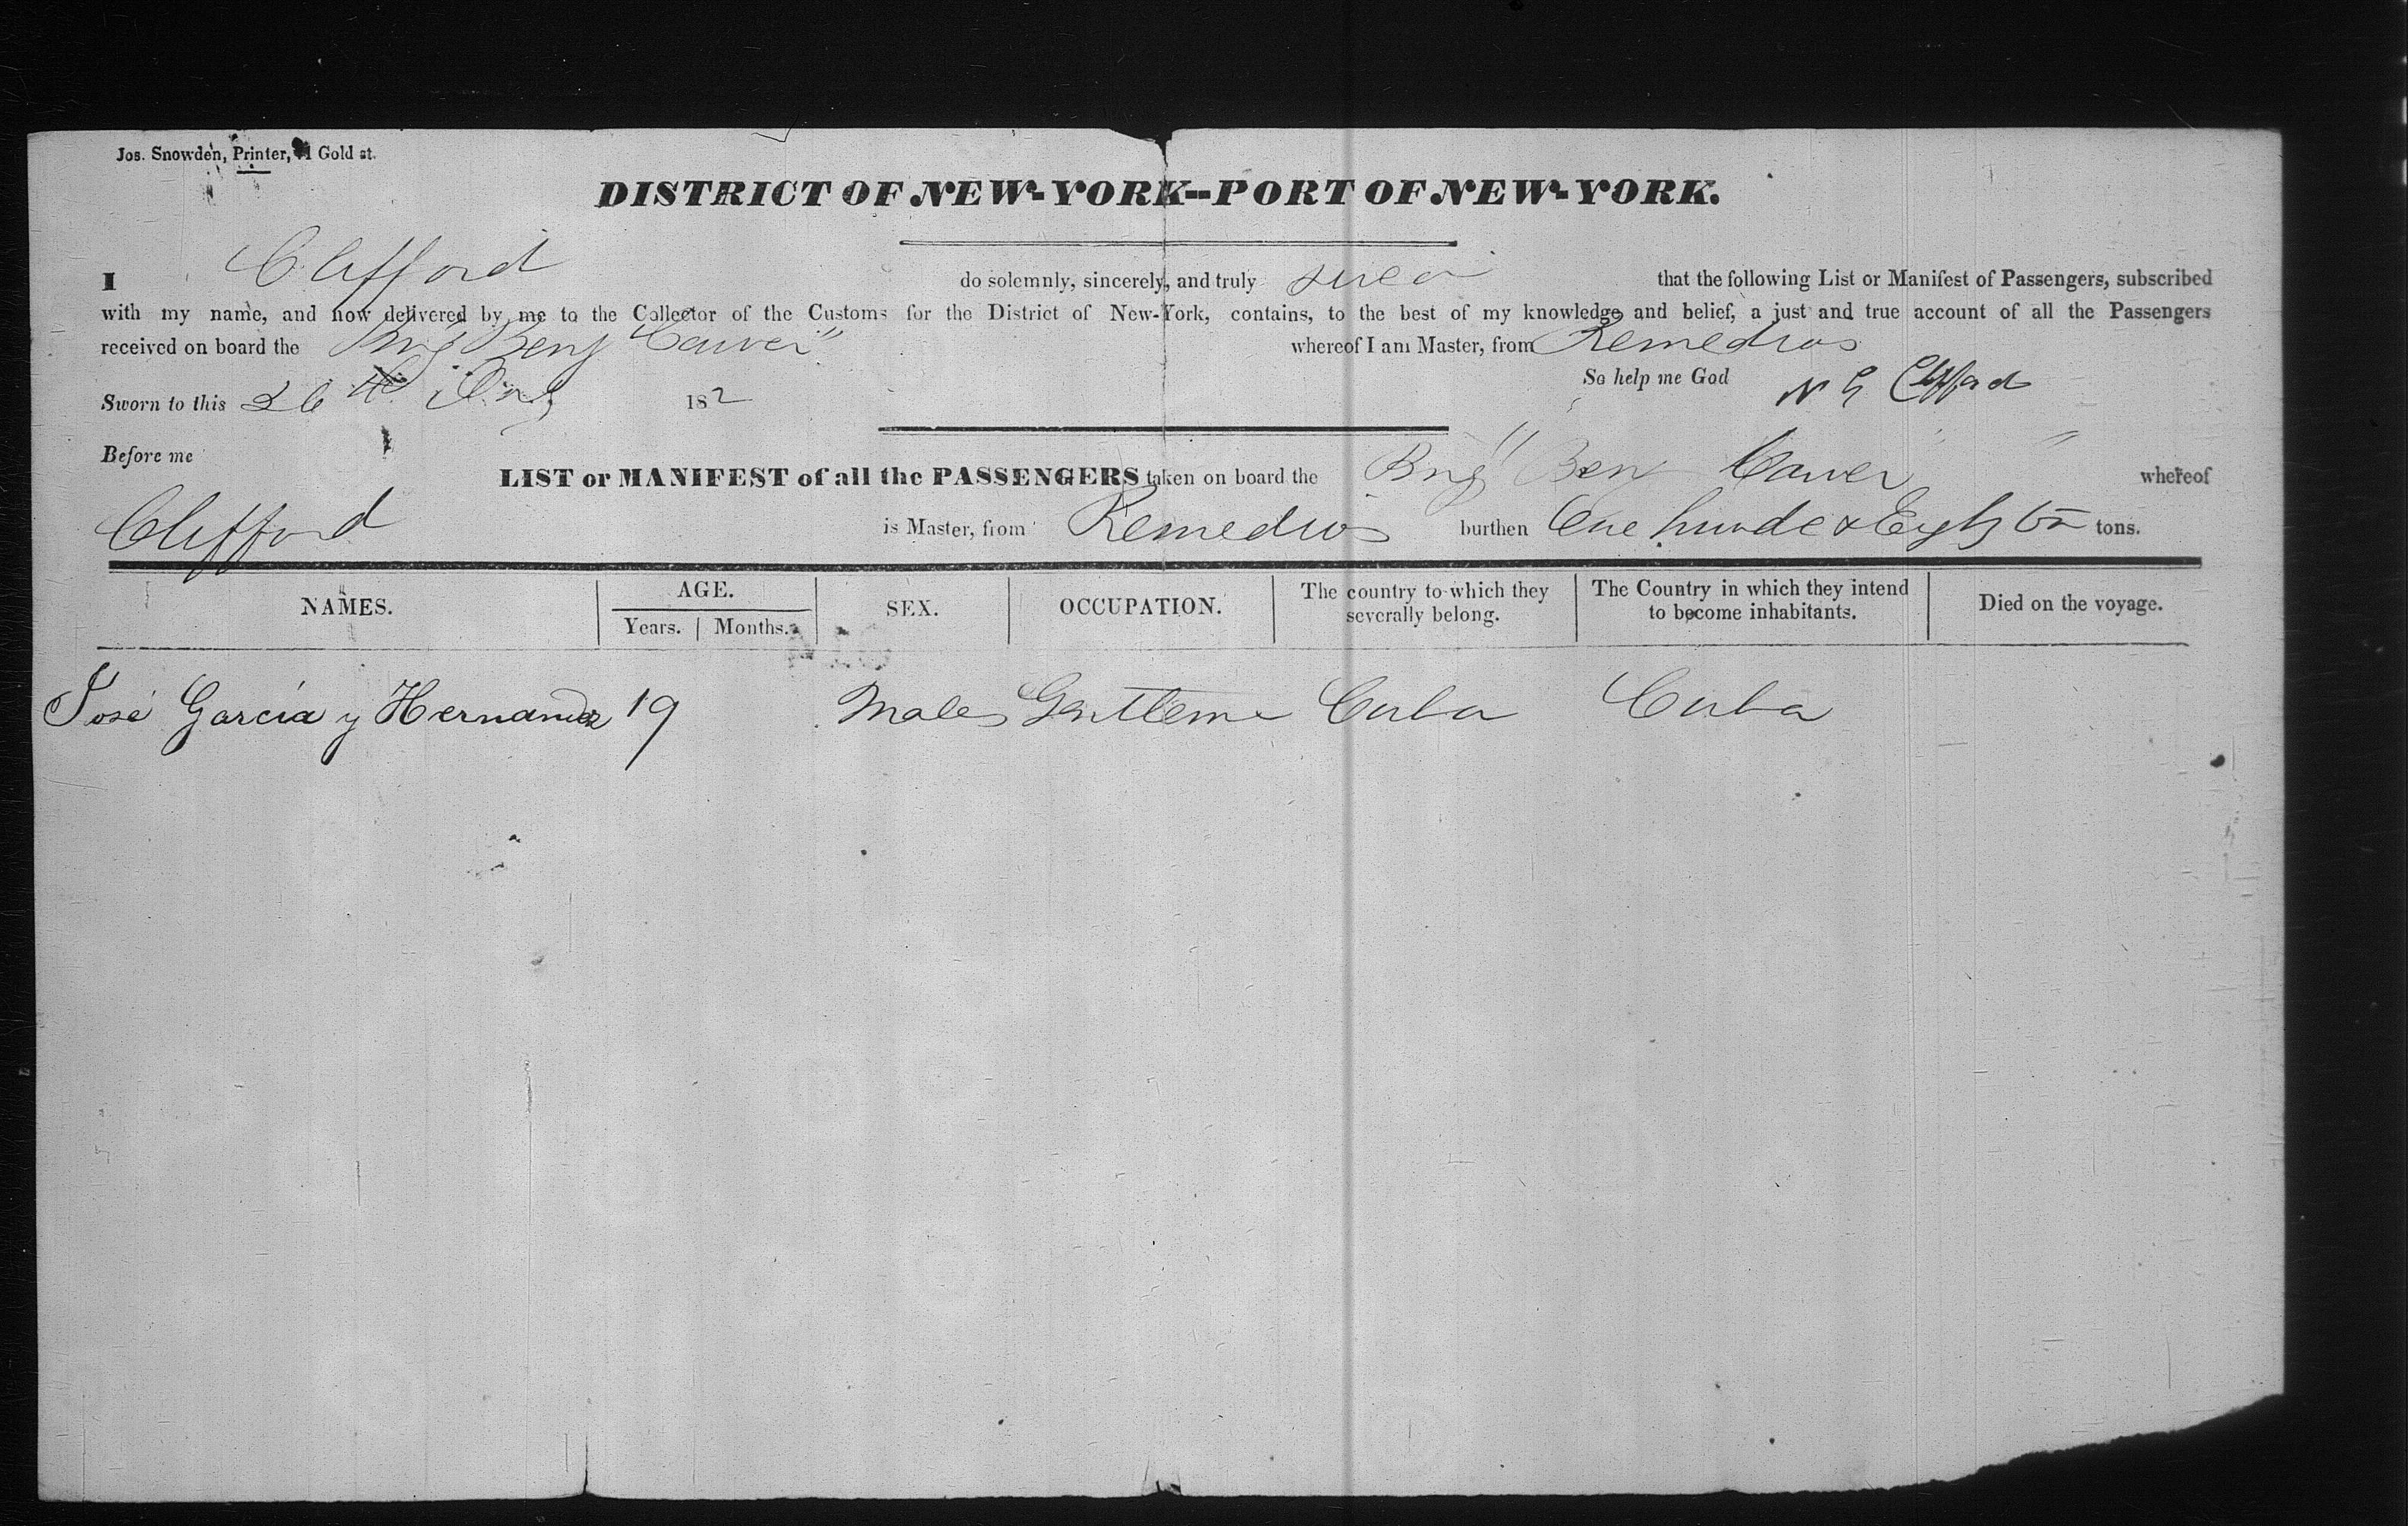 Jos. Snowden, Printer, Gold st.
DISTRICT OF NEW-YORK--PORT OF NEW-YORK.
I Clifford do solemnly, sincerely, and truly that the following List or Manifest of Passengers, subscribed
with my name, and now delivered by me to the Collector of the Customs for the District of New-York, contains, to the best of my knowledge and belief, a just and true account of all the Passengers
received on board the Brig Benj whereof I am Master, from Remedios
So help me God N G Clifford
Sworn to this 26 th 182
Before me
LIST or MANIFEST of all the PASSENGERS taken on board the Brig " Benj " whereof
Clifford is Master, from Remedios burthen One tons.
NAMES. AGE. Years. Months. SEX. OCCUPATION. The country to which they severally belong. The Country in which they intend to become inhabitants. Died on the voyage.
José García y Hernandez 19 Males Cuba Cuba